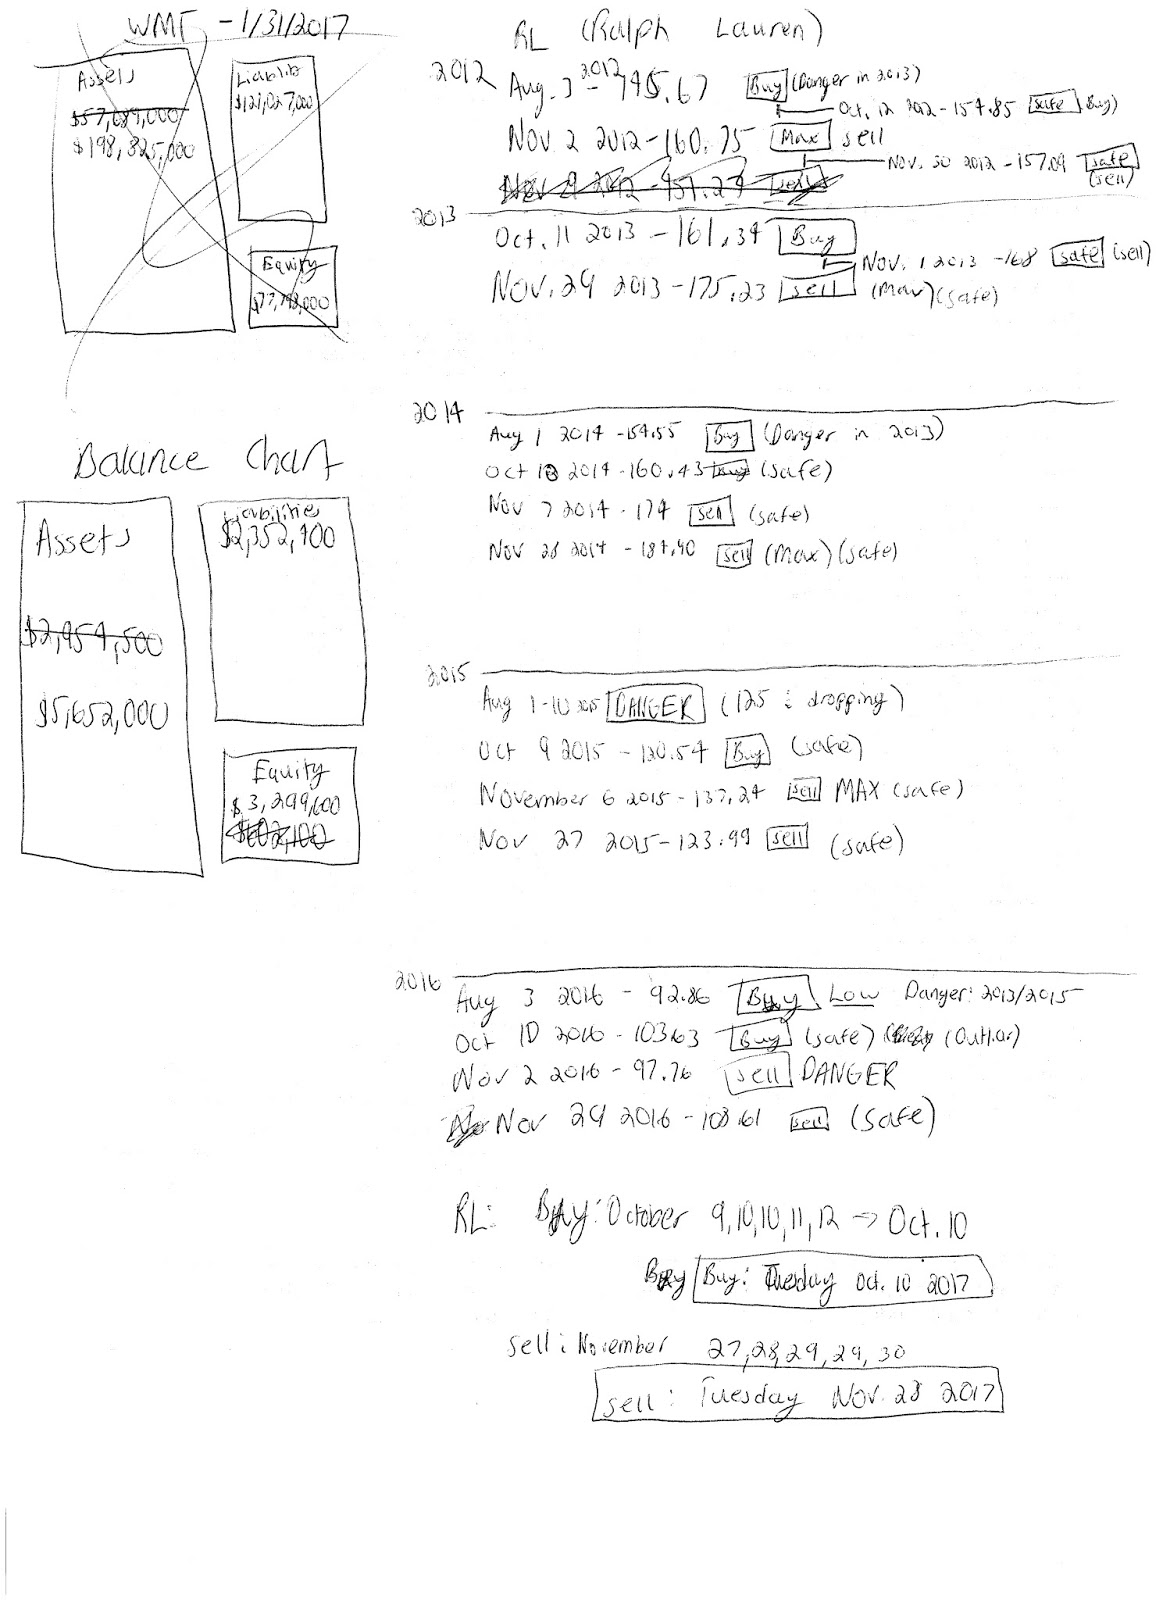 WMT - 1/31/2017
Assets
$57,689,000
$198,825,000
Liabilits
$121,027,000
Equity
$77,798,000
Balance Chart
Assets
$2,954,500
$5,652,000
Liabilities
$2,352,400
Equity
$3,299,600
$602,100
RL (Ralph Lauren)
2012
Aug. 3 2012 - 145.67 Buy (Danger in 2013)
Oct. 12 2012 - 154.85 safe Buy)
Nov 2 2012 - 160.75 Max sell
Nov. 30 2012 - 157.09 safe
(sell)
Nov 9 2012 - 151.27 sell
2013
Oct. 11 2013 - 161.34 Buy
Nov. 1 2013 - 168 safe (sell)
Nov. 29 2013 - 175.23 sell (Max) (safe)
2014
Aug 1 2014 - 154.55 Buy (Danger in 2013)
Oct 10 2014 - 160.43 Buy (safe)
Nov 7 2014 - 174 sell (safe)
Nov 28 2014 - 184.40 sell (Max) (safe)
2015
Aug 1-10 2015 DANGER (125 : dropping)
Oct 9 2015 - 120.54 Buy (safe)
November 6 2015 - 137.24 sell MAX (safe)
Nov 27 2015 - 123.99 sell (safe)
2016
Aug 3 2016 - 92.86 Buy Low Danger: 2013/2015
Oct 10 2016 - 103.63 Buy (safe) (Outliar)
Nov 2 2016 - 97.76 sell DANGER
Nov 29 2016 - 108.61 sell (safe)
RL: Buy: October 9,10,10,11,12 → Oct. 10
Buy Buy: Tuesday Oct. 10 2017
sell: November 27,28,29,29,30
sell: Tuesday Nov. 28 2017